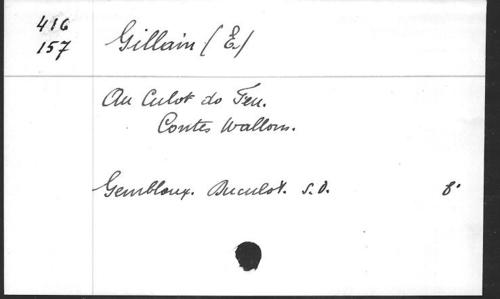 416
157
Gillain (E)
Au Culot do Feu.
Contes Wallons.
Gembloux. Duculot. S.D. 8°